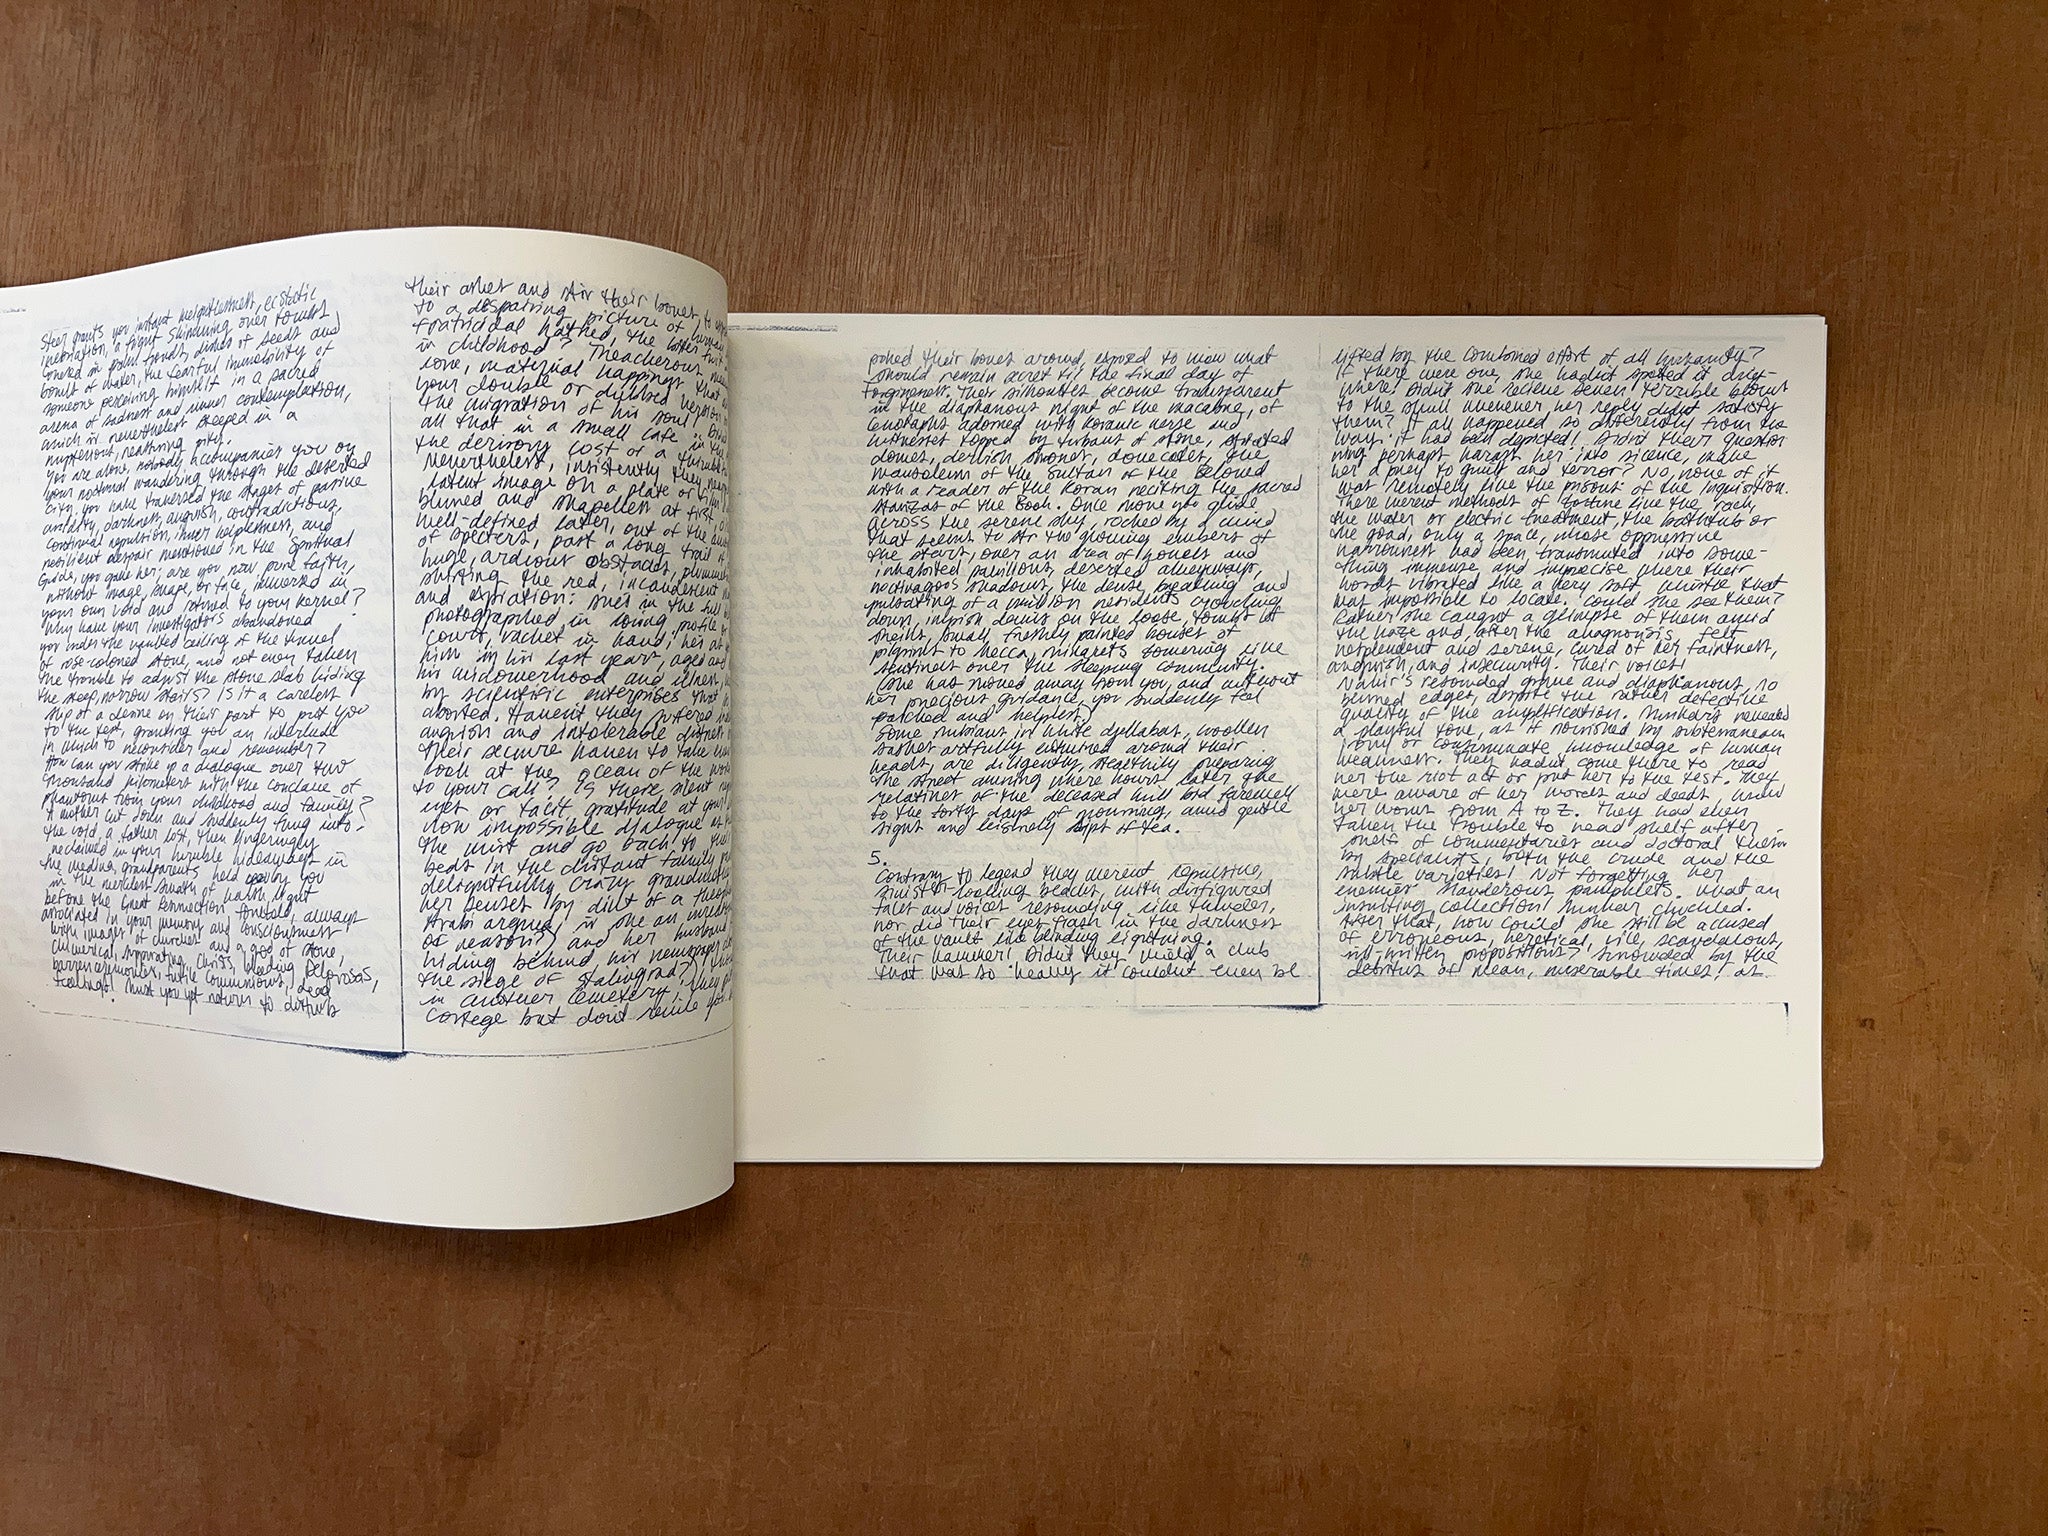 steer grants you instant weightlessness, ecstatic
inebriation, a flight skimming over tombs
covered in palm fronds, dishes of seeds and
bowls of water, the fearful immobility of
someone perceiving himself in a sacred
arena of sadness and inner contemplation,
which is nevertheless steeped in a
mysterious, realising pity.
You are alone, nobody accompanies you on
your nocturnal wandering through the deserted
city. you have traversed the stages of passive
aridity, darkness, anguish, contradictions,
continual repulsion, inner helplessness, and
resilient despair mentioned in the Spiritual
Guide, you gave her: are you now pure faith,
without image, shape, or face, immersed in
your own void and retired to your kernel?
Why have your investigators abandoned
you under the vaulted ceiling of the tunnel
of rose-colored stone, and not even taken
the trouble to adjust the stone slab hiding
the steep, narrow stairs? Is it a careless
slip or a desire on their part to put you
to the test, granting you an interlude
in which to reconsider and remember?
How can you strike up a dialogue over two
thousand kilometers with the conclave of
phantoms from your childhood and family?
A mother cut down and suddenly flung into
the void, a father lost, then lingeringly
reclaimed in your humble hideaways in
the medina, grandparents held by you
in the merciless swath of health, light
before the Great Connection foretold, always
associated in your memory and consciousness
with images of churches and a god of stone,
chimerical, suppurating Christs, bleeding Dolorosas,
barren ceremonies, futile communions, dead
feelings! Must you yet return to disturb
their ashes and stir their bones, to
to a despairing picture of human
fratricidal hatred, the bitter fruit
in childhood? Treacherous
love, maternal happiness that
your double or dubbed version
the migration of his soul
all that in a small cafe in the
the derisory cost of a
Nevertheless, insistently they
latent image on a plate or film
blurred and shapeless at first,
well-defined later, out of the
of specters, past a long trail of
huge, arduous obstacles,
skirting the red, incandescent
and expiation: she's in the full
photographed in losing profile
court, racket in hand; he's at
him in his last years, aged and
his widowerhood and illness,
by scientific enterprises that
aborted. Haven't they suffered
anguish and intolerable distress
their secure haven to take
look at the ocean of the world
to your call? Is there, silent
yet or tacit, gratitude at your
now impossible dialogue
the mist and go back to their
beds in the distant family
delightfully crazy grandmother
her senses by dint of a
Arabi argued, in one an unreal
of reason?) and her husband
hiding behind his newspaper
the siege of Stalingrad?) they
in another cemetery,
cortege but don't revile you
poked their bones around, exposed to view what
should remain secret till the final day of
forgiveness. Their silhouettes become transparent
in the diaphanous night of the macabre, of
cenotaphs adorned with Koranic verse and
witnesses topped by turbans of stone, striated
domes, derlish stones, dovecotes, the
mausoleum of the Sultan of the Beloved
with a reader of the Koran reciting the sacred
stanzas of the Book. Once more you glide
across the serene sky, rocked by a wind
that seems to stir the glowing embers of
the stars, over an area of hovels and
inhabited pavilions, deserted alleyways,
noctivagous shadows, the dense breathing and
pulsating of a million residents crouching
down, impish dawns on the loose, tombs of
sheiks, small freshly painted houses of
pilgrims to Mecca, minarets towering like
sentinels over the sleeping community.
(She has moved away from you, and without
her precious guidance, you suddenly feel
parched and helpless)
Some nubians in white djellabas, woollen
sashes artfully entwined around their
heads, are diligently, stealthily preparing
the street awning where hours later the
relatives of the deceased will bid farewell
to the forty days of mourning, amid gentle
sighs and leisurely sips of tea.
5.
Contrary to legend they weren't repulsive,
sinister-looking beasts, with disfigured
faces and voices resounding like thunder,
nor did their eyes flash in the darkness
of the vault like blinding lightning.
Their hammer! Didn't they wield a club
that was so heavy it couldn't even be
lifted by the combined effort of all humanity?
If there were one, she hadn't spotted it any-
where! Didn't she receive seven terrible blows
to the skull whenever her reply didn't satisfy
them? It all happened so differently from the
way it had been depicted! Didn't their question
ning perhaps harass her into silence, make
her a prey to guilt and terror? No, none of it
was remotely like the prisons of the Inquisition.
There weren't methods of torture like the rack,
the water or electric treatment, the bathtub or
the goad, only a space, whose oppressive
narrowness had been transmuted into some-
thing immense and imprecise where their
words vibrated like a very soft whistle that
was impossible to locate. Could she see them?
Rather she caught a glimpse of them amid
the haze and, after the diagnosis, felt
resplendent and serene, cured of her faintness,
anguish, and insecurity. Their voices!
Nakir's resounded grave and diaphanous, no
blurred edges, despite the rather defective
quality of the amplification. Munkar's revealed
a playful tone, as if nourished by subterranean
irony or consummate knowledge of human
weakness. They hadn't come there to read
her the riot act or put her to the test. They
were aware of her words and deeds, knew
her works from A to Z. They had even
taken the trouble to read shelf after
shelf of commentaries and doctoral theses
by specialists, both the crude and the
subtle varieties! Not forgetting her
enemies' slanderous pamphlets. What an
insulting collection! Munkar chuckled.
After that, how could she still be accused
of erroneous, heretical, vile, scandalous,
ill-written propositions? Surrounded by the
detritus of mean, miserable times, at